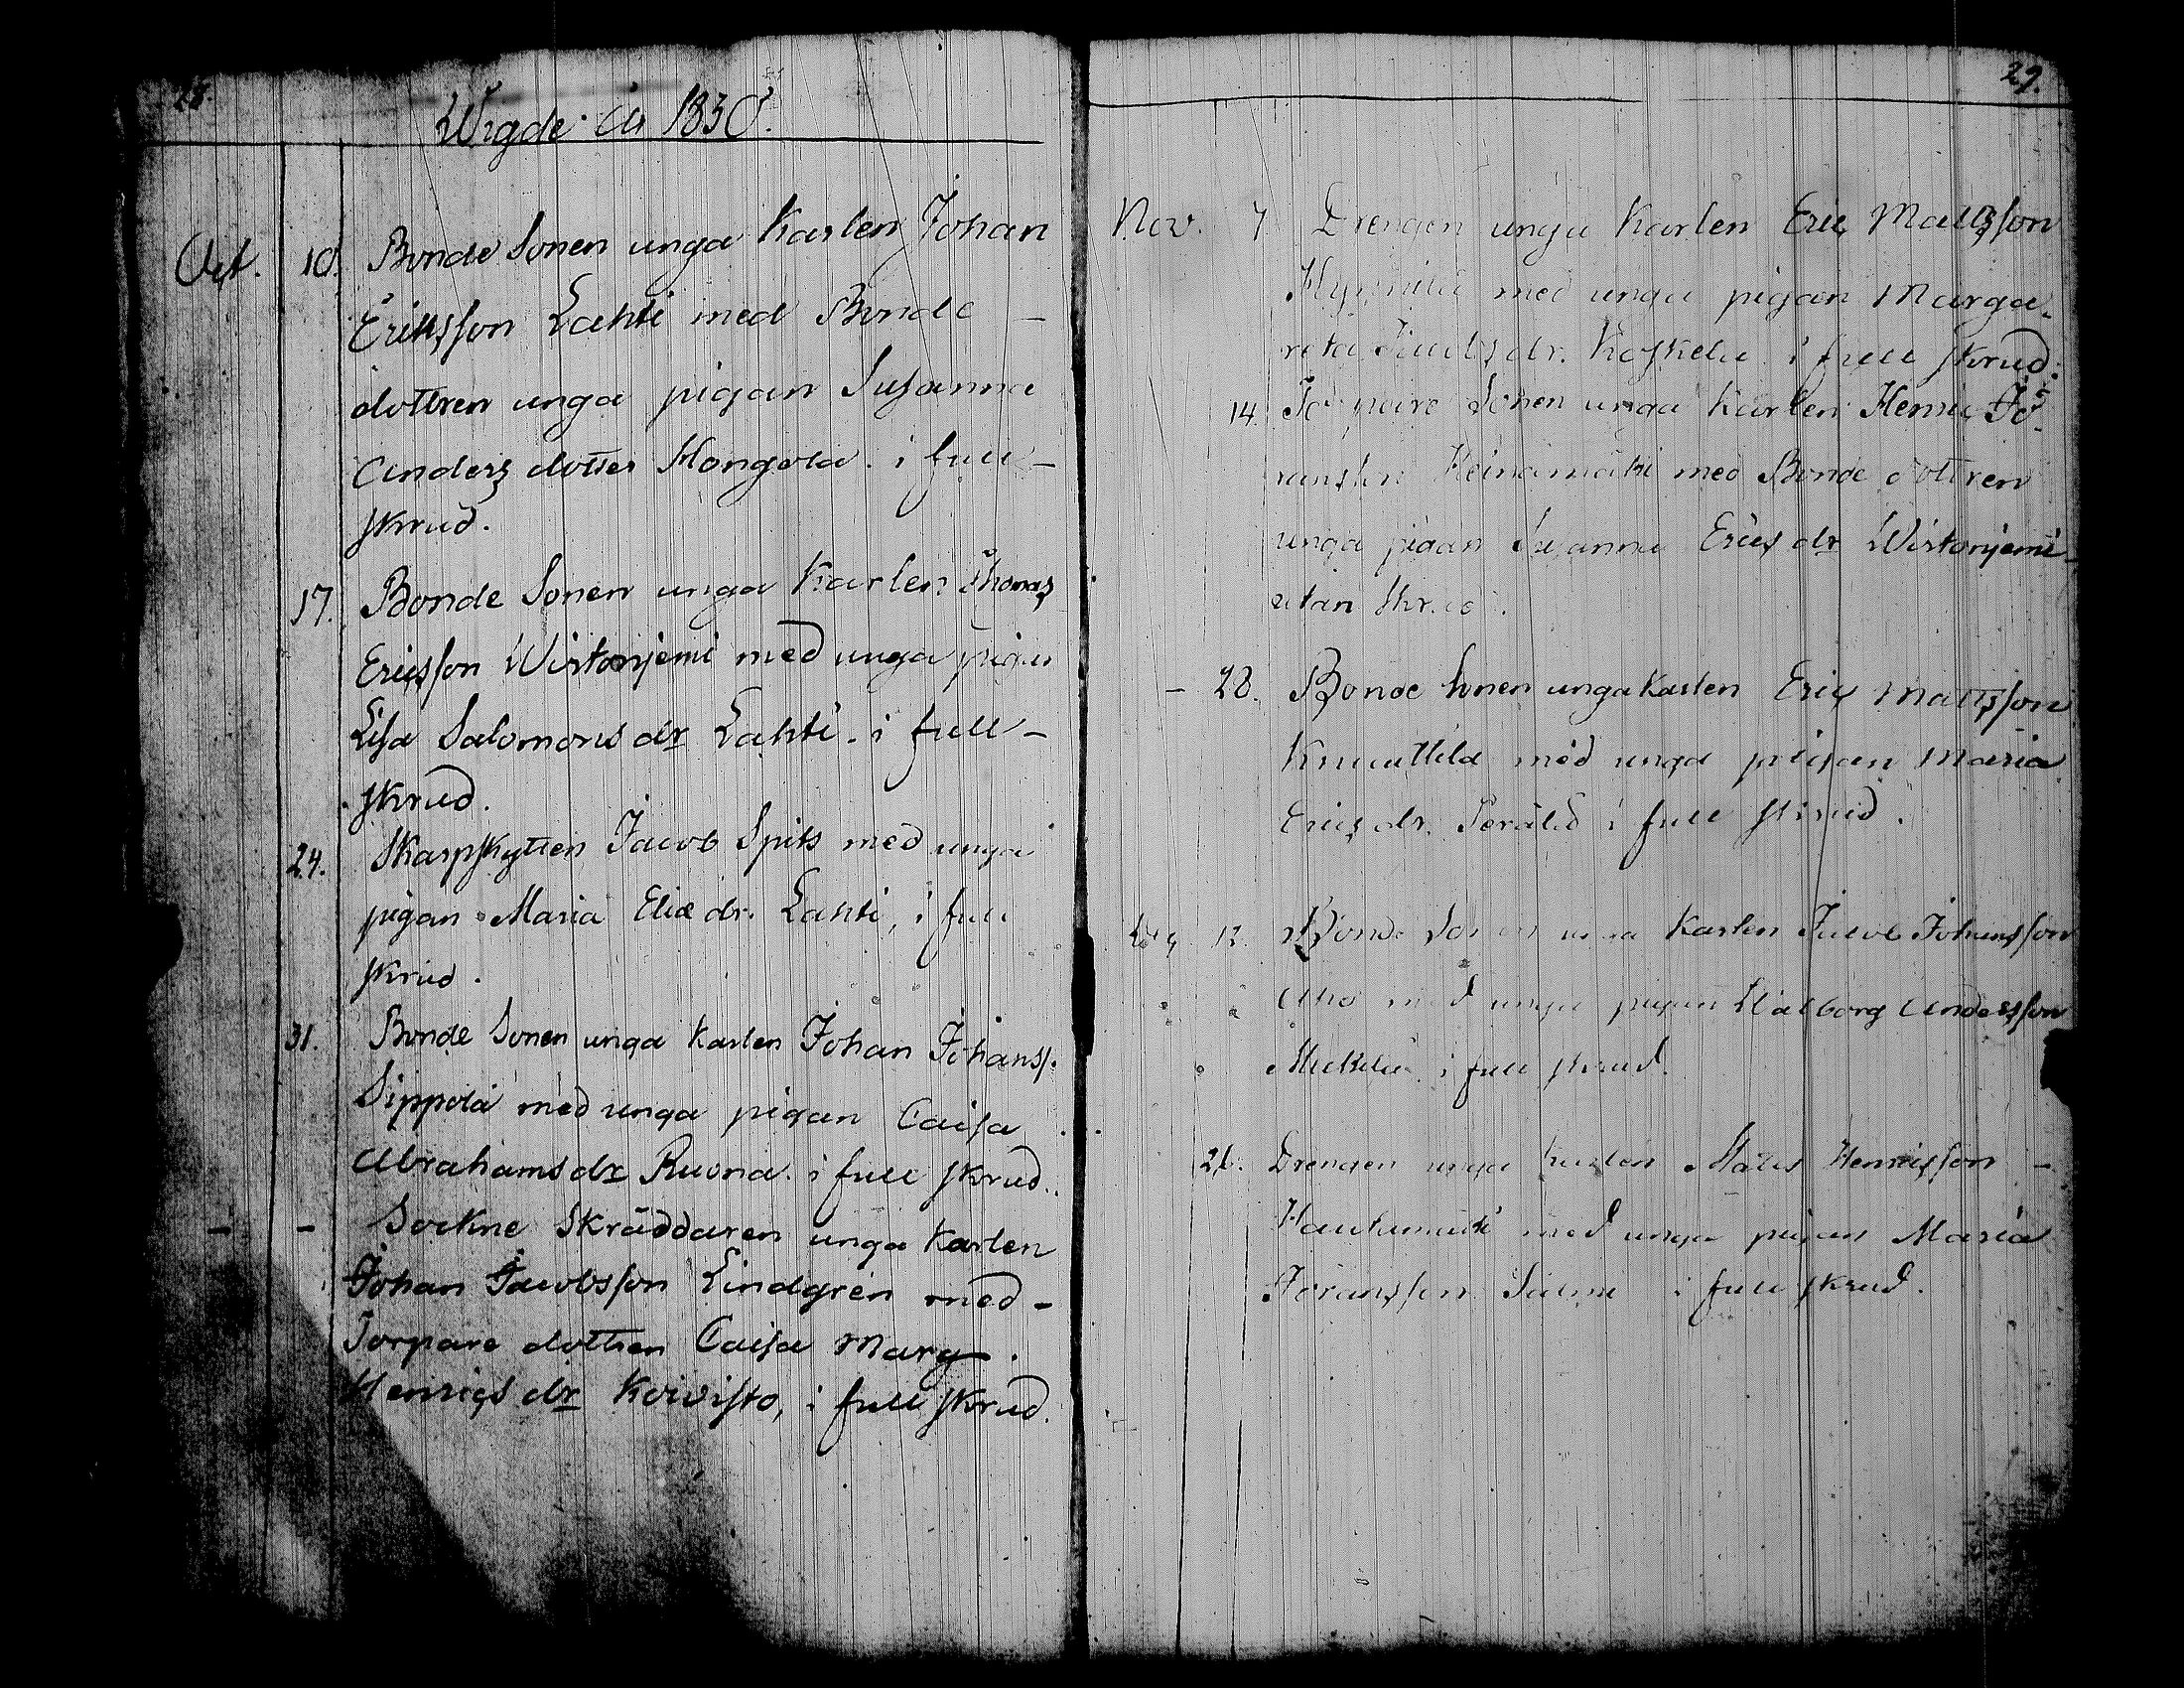 28.
Wigde år 1830.
Oct. 10. Bonde Sonen unga Karlen Johan
Ericsson Lahti med Bonde –
dottren unga pigan Susanna
Anders dotter Hongola. i full –
skrud.
17. Bonde Sonen unga Karlen Thomas
Ericsson Wirtanjemi med unga pigan
Lisa Salomons dr Lahti. i full –
skrud.
24. Skarpskytten Jacob Spits med unga
pigan Maria Eliæ dr. Lahti, i full
skrud.
31. Bonde Sonen unga Karlen Johan Johanss.
Sippola med unga pigan Caisa
Abrahams dr Ruona. i full skrud.
– – Sockne Skräddaren unga Karlen
Johan Jacobsson Lindgren med –
Torpare dottren Caisa Marg.
Henrics dr Koivisto, i full skrud.
29.
Nov. 7 Drengen unga Karlen Eric Mattsson
med unga pigan Marga-
reta Jacobs dr. Koskela i full skrud.
14. Torpare Sonen unga Karlen Henric Jö-
ransson Heinamäki med Bonde dottren
unga pigan Susanna Erics dr Wirtanjemi –
utan skrud.
– 28. Bonde Sonen unga Karlen Eric Mattsson
Knuuttila med unga pigan Maria
Erics dr. Perälä i full skrud.
12. Bonde Sonen unga Karlen Jacob Johansson
Aho med unga pigan Walborg Andersson
i full skrud.
26. Drengen unga Karlen Matts Henricsson –
Hautamäki med unga pigan Maria
Jöransson i full skrud.